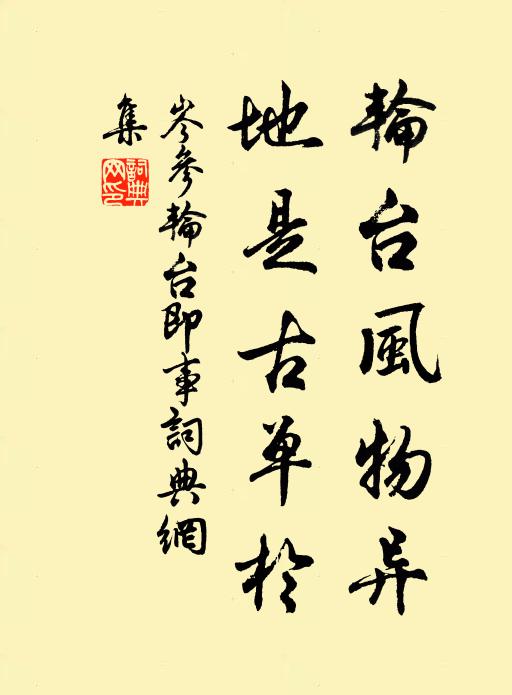 輪台風物异
地是古单於
岑參輪台即事詞典網
集
詞典网印